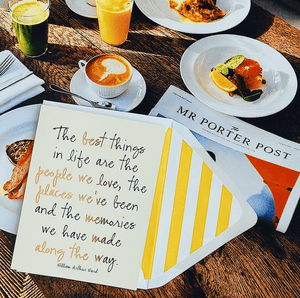 MR PORTER POST
The best things
in life are the
people we love, the
places we've been
and the memories
we have made
along the way.
William Arthur Ward